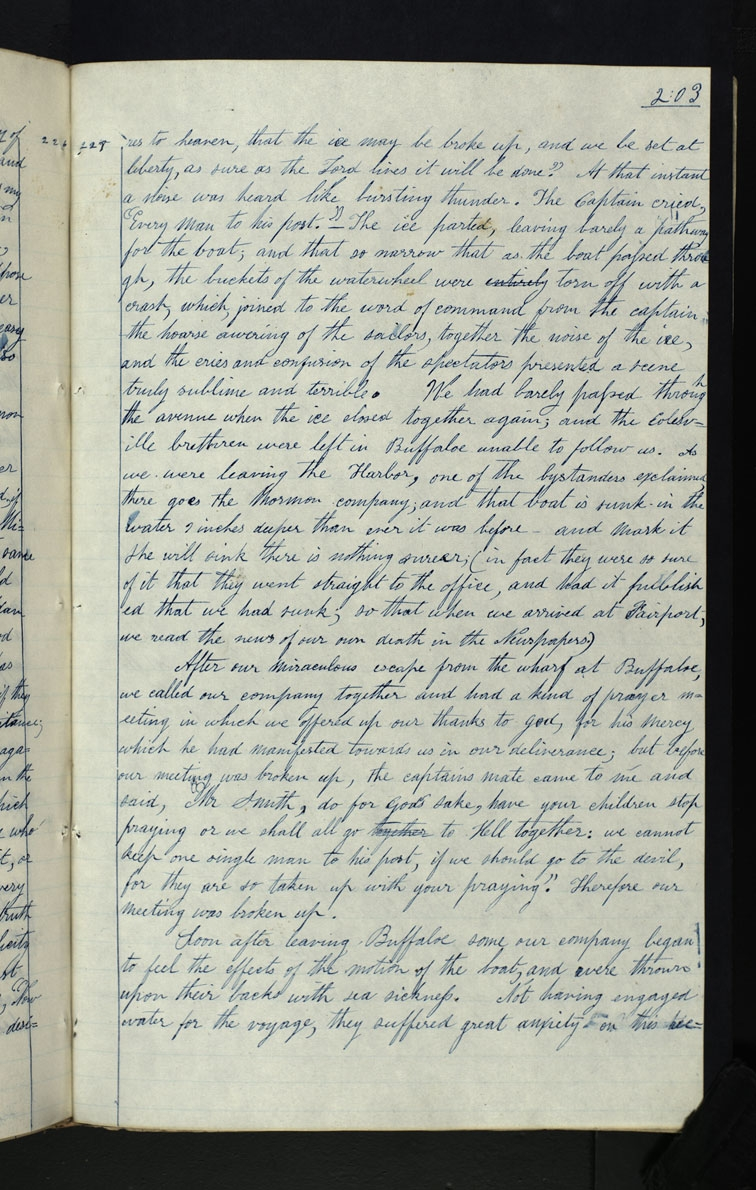 203
224 225
res to heaven, that the ice may be broke up, and we be set at
liberty, as sure as the Lord lives it will be done." At that instant
a noise was heard like bursting thunder. The Captain cried,
"Every man to his post." The ice parted, leaving barely a pathway
for the boat; and that so narrow that as the boat passed throu
gh, the buckets of the waterwheel were entirely torn off with a
crash, which joined to the word of command from the captain
the hoarse awering of the sailors, together the noise of the ice,
and the cries and confusion of the spectators presented a scene
truly sublime and terrible. We had barely passed through
the avenue when the ice closed together again; and the Colesv=
ille brethren were left in Buffaloe unable to follow us. As
we were leaving the Harbor, one of the bystanders exclaimed
there goes the Mormon company; and that boat is sunk in the
water 9 inches deeper than ever it was before – and mark it
she will sink there is nothing surer; (in fact they were so sure
of it that they went straight to the office, and had it publish
ed that we had sunk; so that when we arrived at Fairport,
we read the news of our own death in the Newspapers)
After our miraculous escape from the wharf at Buffaloe,
we called our company together and had a kind of prayer m=
eeting in which we offered up our thanks to god, for his mercy
which he had manifested towards us in our deliverance; but before
our meeting was broken up, the captains mate came to me and
said, "Mr Smith, do for gods sake, have your children stop
praying or we shall all go together to Hell together: we cannot
keep one single man to his post, if we should go to the devil,
for they are so taken up with your praying." Therefore our
meeting was broken up.
Soon after leaving Buffaloe some our company began
to feel the effects of the motion of the boat, and were thrown
upon their backs with sea sickness. Not having engaged
water for the voyage, they suffered great anxiety on this acc=